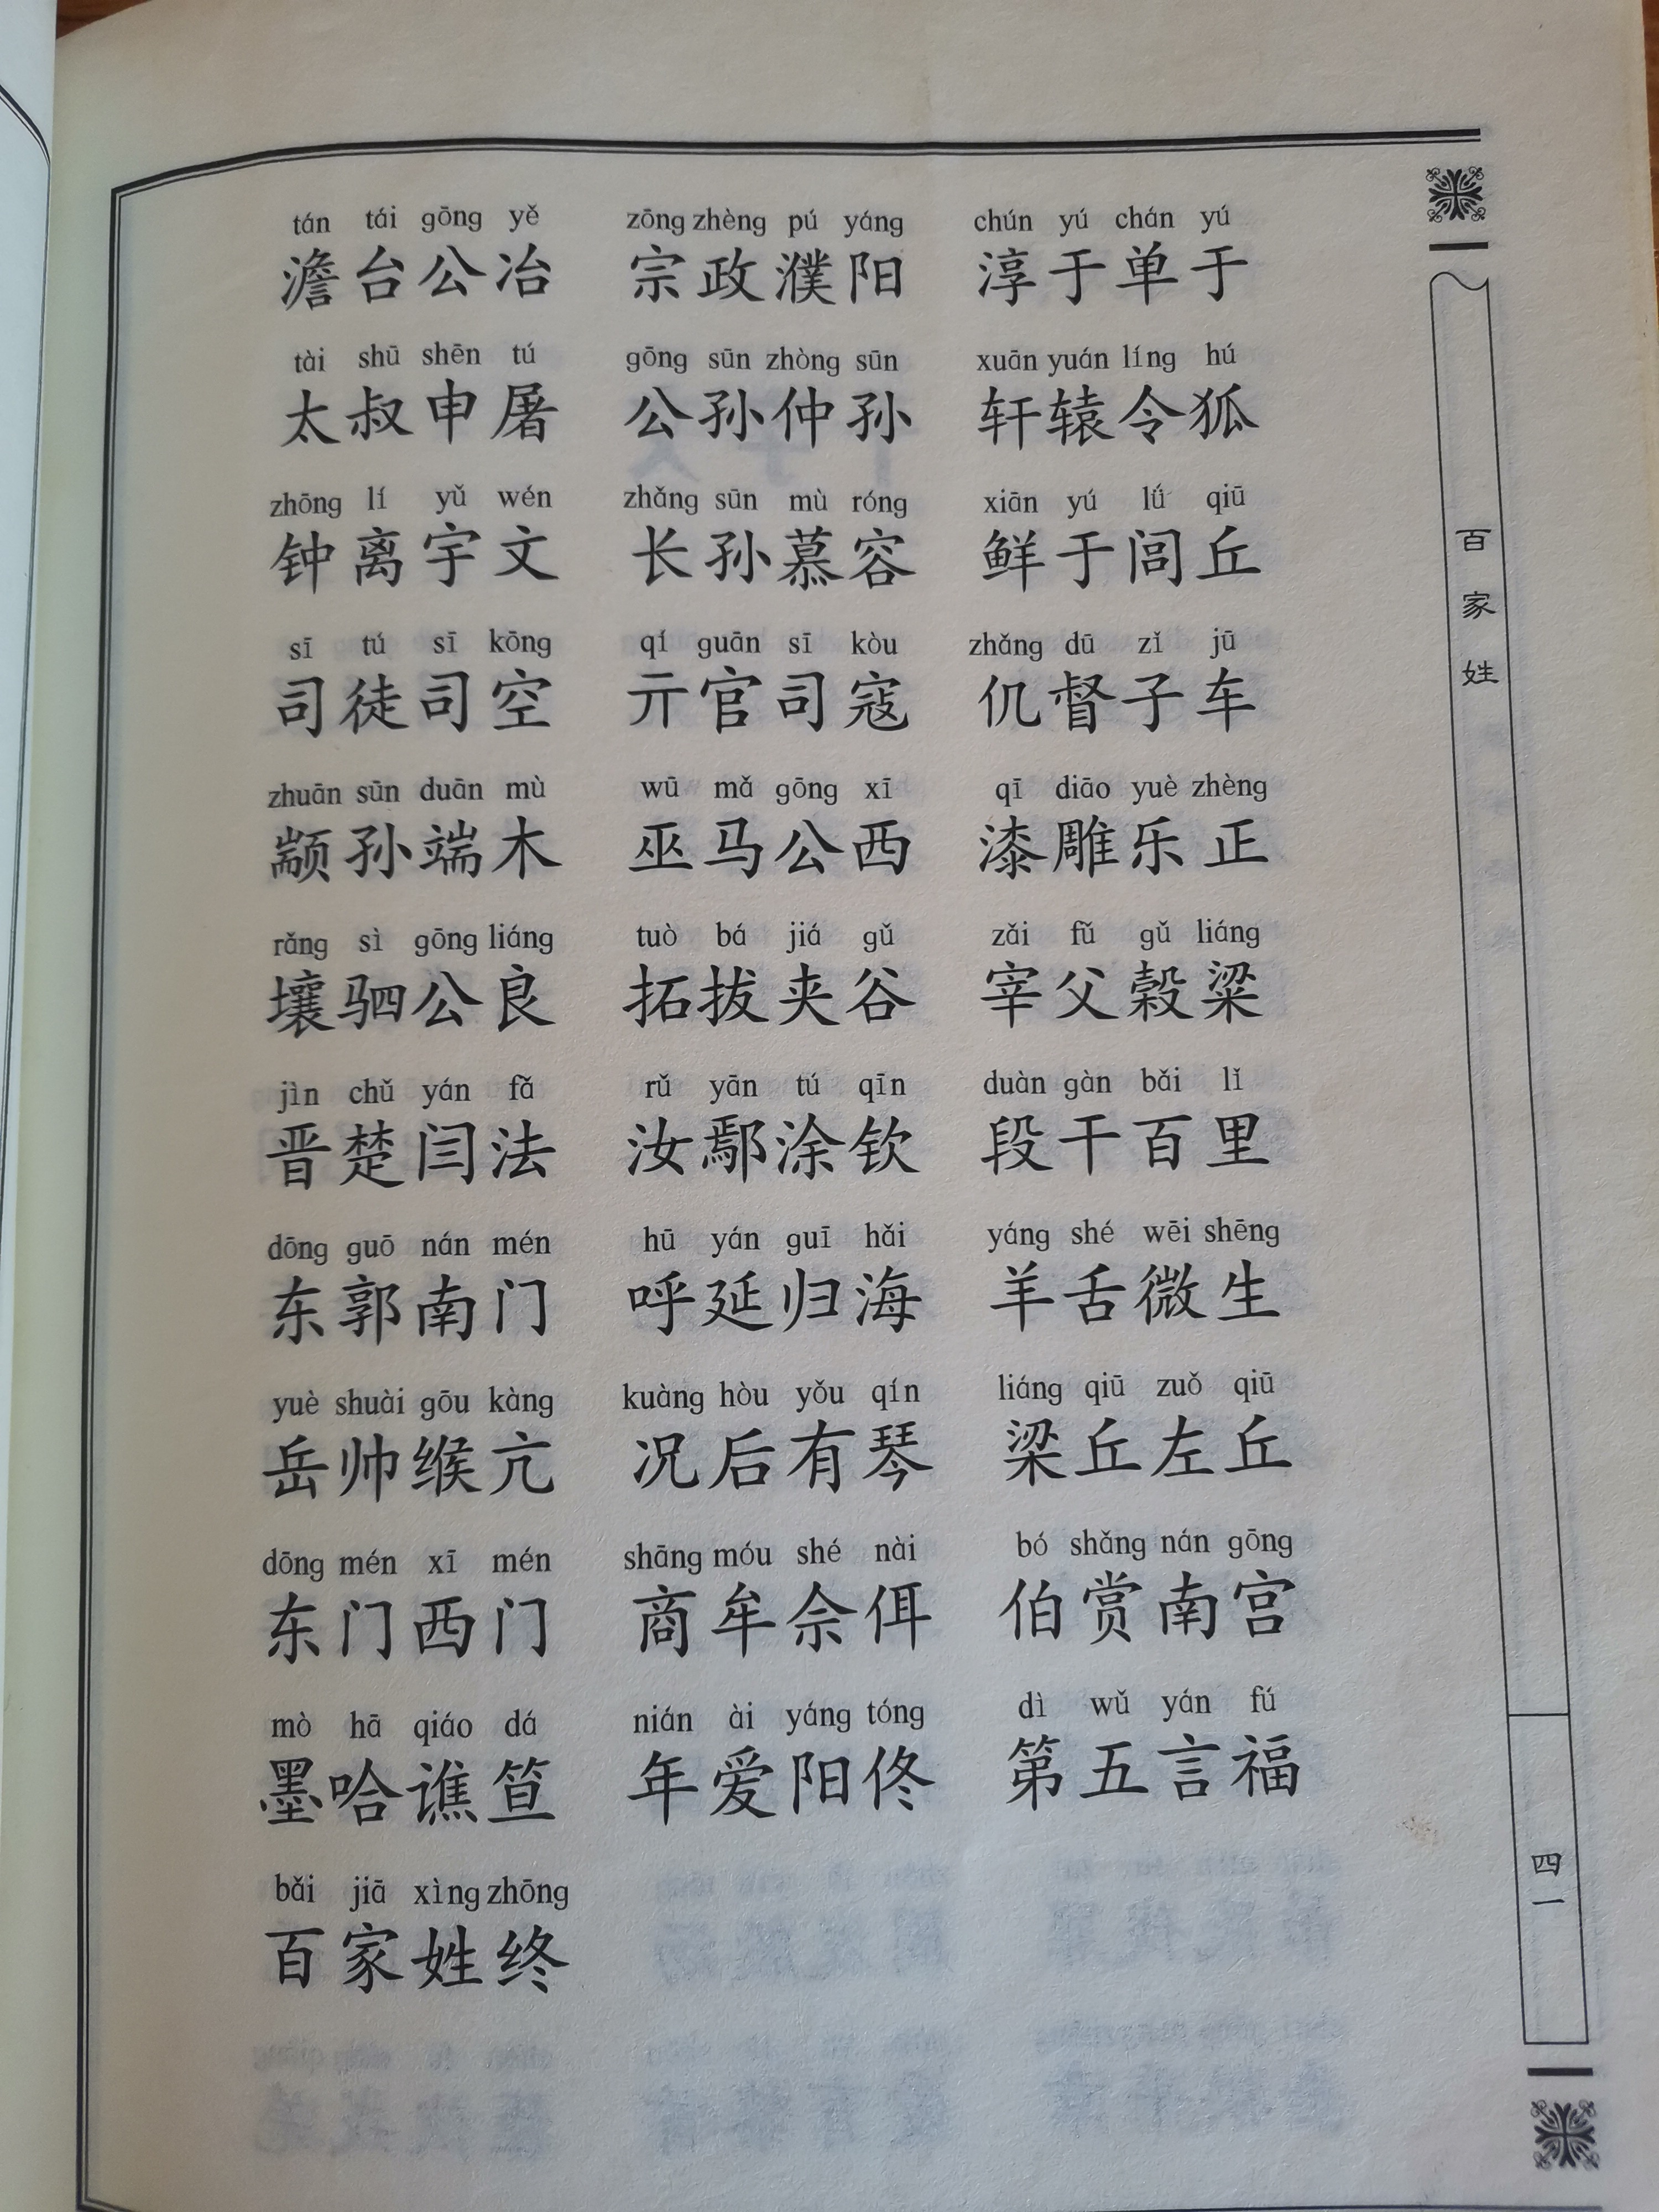 tán tái gōng yě zōng zhèng pú yáng chún yú chán yú
澹台公冶 宗政濮阳 淳于单于
tài shū shēn tú gōng sūn zhòng sūn xuān yuán líng hú
太叔申屠 公孙仲孙 轩辕令狐
zhōng lí yǔ wén zhǎng sūn mù róng xiān yú lǘ qiū
钟离宇文 长孙慕容 鲜于闾丘
sī tú sī kōng qí guān sī kòu zhǎng dū zǐ jū
司徒司空 亓官司寇 仉督子车
zhuān sūn duān mù wū mǎ gōng xī qī diāo yuè zhèng
颛孙端木 巫马公西 漆雕乐正
rǎng sì gōng liáng tuò bá jiá gǔ zǎi fǔ gǔ liáng
壤驷公良 拓拔夹谷 宰父榖粱
jìn chǔ yán fǎ rǔ yān tú qīn duàn gàn bǎi lǐ
晋楚闫法 汝鄢涂钦 段干百里
dōng guō nán mén hū yán guī hǎi yáng shé wēi shēng
东郭南门 呼延归海 羊舌微生
yuè shuài gōu kàng kuàng hòu yǒu qín liáng qiū zuǒ qiū
岳帅缑亢 况后有琴 梁丘左丘
dōng mén xī mén shāng móu shé nài bó shǎng nán gōng
东门西门 商牟佘佴 伯赏南宫
mò hā qiáo dá nián ài yáng tóng dì wǔ yán fú
墨哈谯笪 年爱阳佟 第五言福
bǎi jiā xìng zhōng
百家姓终
百家姓
四一